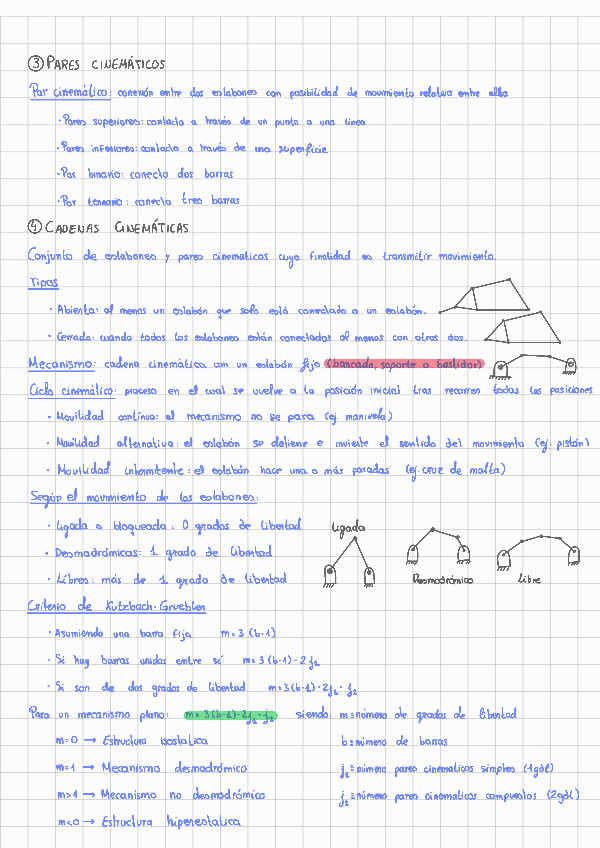 ③ PARES CINEMÁTICOS
Par cinemático: conexión entre dos eslabones con posibilidad de movimiento relativo entre ellos
· Pares superiores: contacto a través de un punto o una línea
· Pares inferiores: contacto a través de una superficie
· Par binario: conecta dos barras
· Par ternario: conecta tres barras
④ CADENAS CINEMÁTICAS
Conjunto de eslabones y pares cinematicos cuya finalidad es transmitir movimiento.
Tipos
· Abierta: al menos un eslabón que solo está conectado a un eslabón.
· Cerrada: cuando todos los eslabones están conectados al menos con otros dos.
Mecanismo: cadena cinemática con un eslabón fijo (bancada, soporte o bastidor)
Ciclo cinemático: proceso en el cual se vuelve a la posición inicial tras recorrer todas las posiciones
· Movilidad continua: el mecanismo no se para (ej. manivela)
· Movilidad alternativa: el eslabón se detiene e invierte el sentido del movimiento (ej. pistón)
· Movilidad intermitente: el eslabón hace una o más paradas (ej. cruz de malta)
Según el movimiento de los eslabones:
· Ligada o bloqueada: 0 grados de libertad
· Desmodrómicas: 1 grado de libertad
· Libres: más de 1 grado de libertad
Ligada
Desmodrómico
Libre
Criterio de Kutzbach-Gruebler
· Asumiendo una barra fija m = 3(b-1)
· Si hay barras unidas entre sí m = 3(b-1) - 2j₁
· Si son de dos grados de libertad m = 3(b-1) - 2j₁ - j₂
Para un mecanismo plano: m = 3(b-1) - 2j₁ - j₂ siendo m ≡ número de grados de libertad
m=0 → Estructura isostatica b ≡ número de barras
m=1 → Mecanismo desmodrómico j₁ ≡ número pares cinematicos simples (1gdl)
m>1 → Mecanismo no desmodrómico j₂ ≡ número pares cinematicos compuestos (2gdl)
m<0 → Estructura hiperestatica